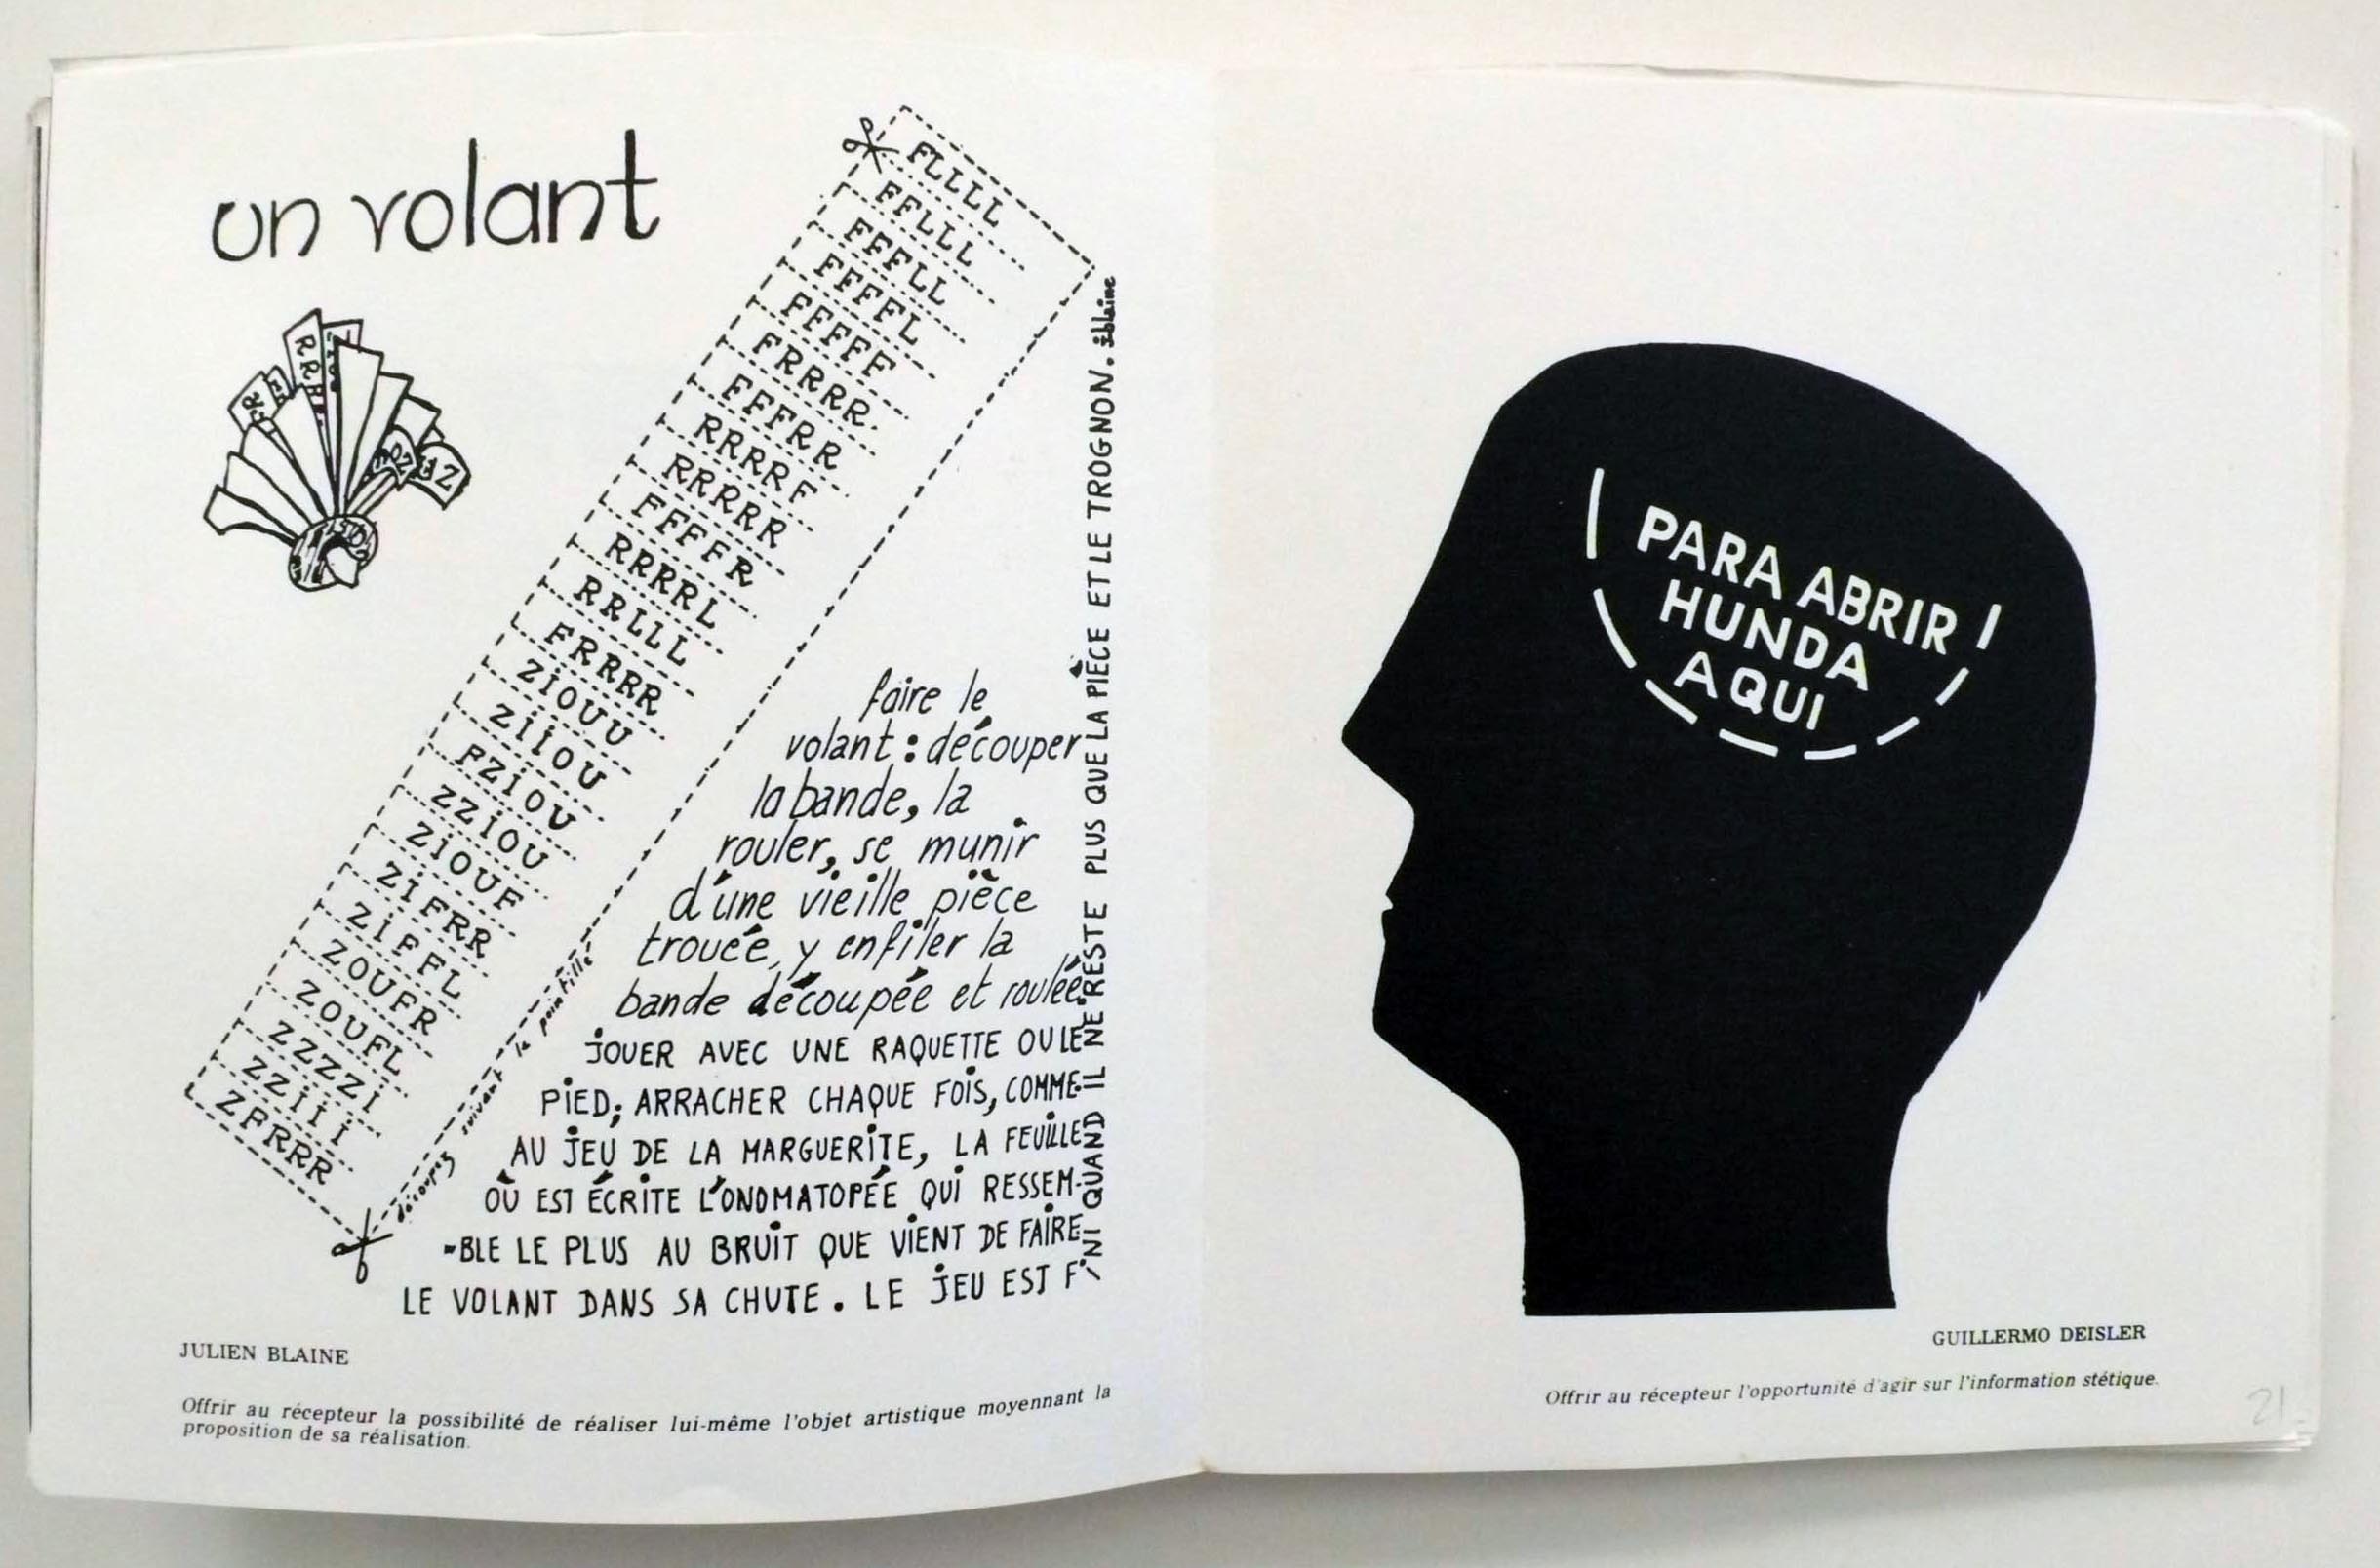 un volant
FLLLL
FFLLL
FFFLL
FFFFL
FFFFF
FRRRR
FFFRR
RRRRF
RRRRR
FFFFR
RRRRL
RRLLL
FRRRR
ZiOUU
ZiiOU
FZiOU
ZZiOU
ZiOUF
ZIFRR
ZiFFL
ZOUFR
ZOUFL
ZZZZi
ZZiii
ZFRRR
découpez suivant le pointillé
faire le
volant : découper
la bande, la
rouler, se munir
d'une vieille pièce
trouée, y enfiler la
bande découpée et roulée
JOUER AVEC UNE RAQUETTE OU LE
PiED; ARRACHER CHAQUE FOiS, COMME
AU JEU DE LA MARGUERiTE, LA FEUiLLE
OÙ EST ÉCRiTE L'ONOMATOPÉE QUi RESSEM-
-BLE LE PLUS AU BRUiT QUE ViENT DE FAiRE
LE VOLANT DANS SA CHUTE. LE JEU EST Fi
NI QUAND IL NE RESTE PLUS QUE LA PIÈCE ET LE TROGNON. jblaine
JULIEN BLAINE
Offrir au récepteur la possibilité de réaliser lui-même l'objet artistique moyennant la
proposition de sa réalisation.
PARA ABRIR
HUNDA
AQUI
GUILLERMO DEISLER
Offrir au récepteur l'opportunité d'agir sur l'information stétique.
21